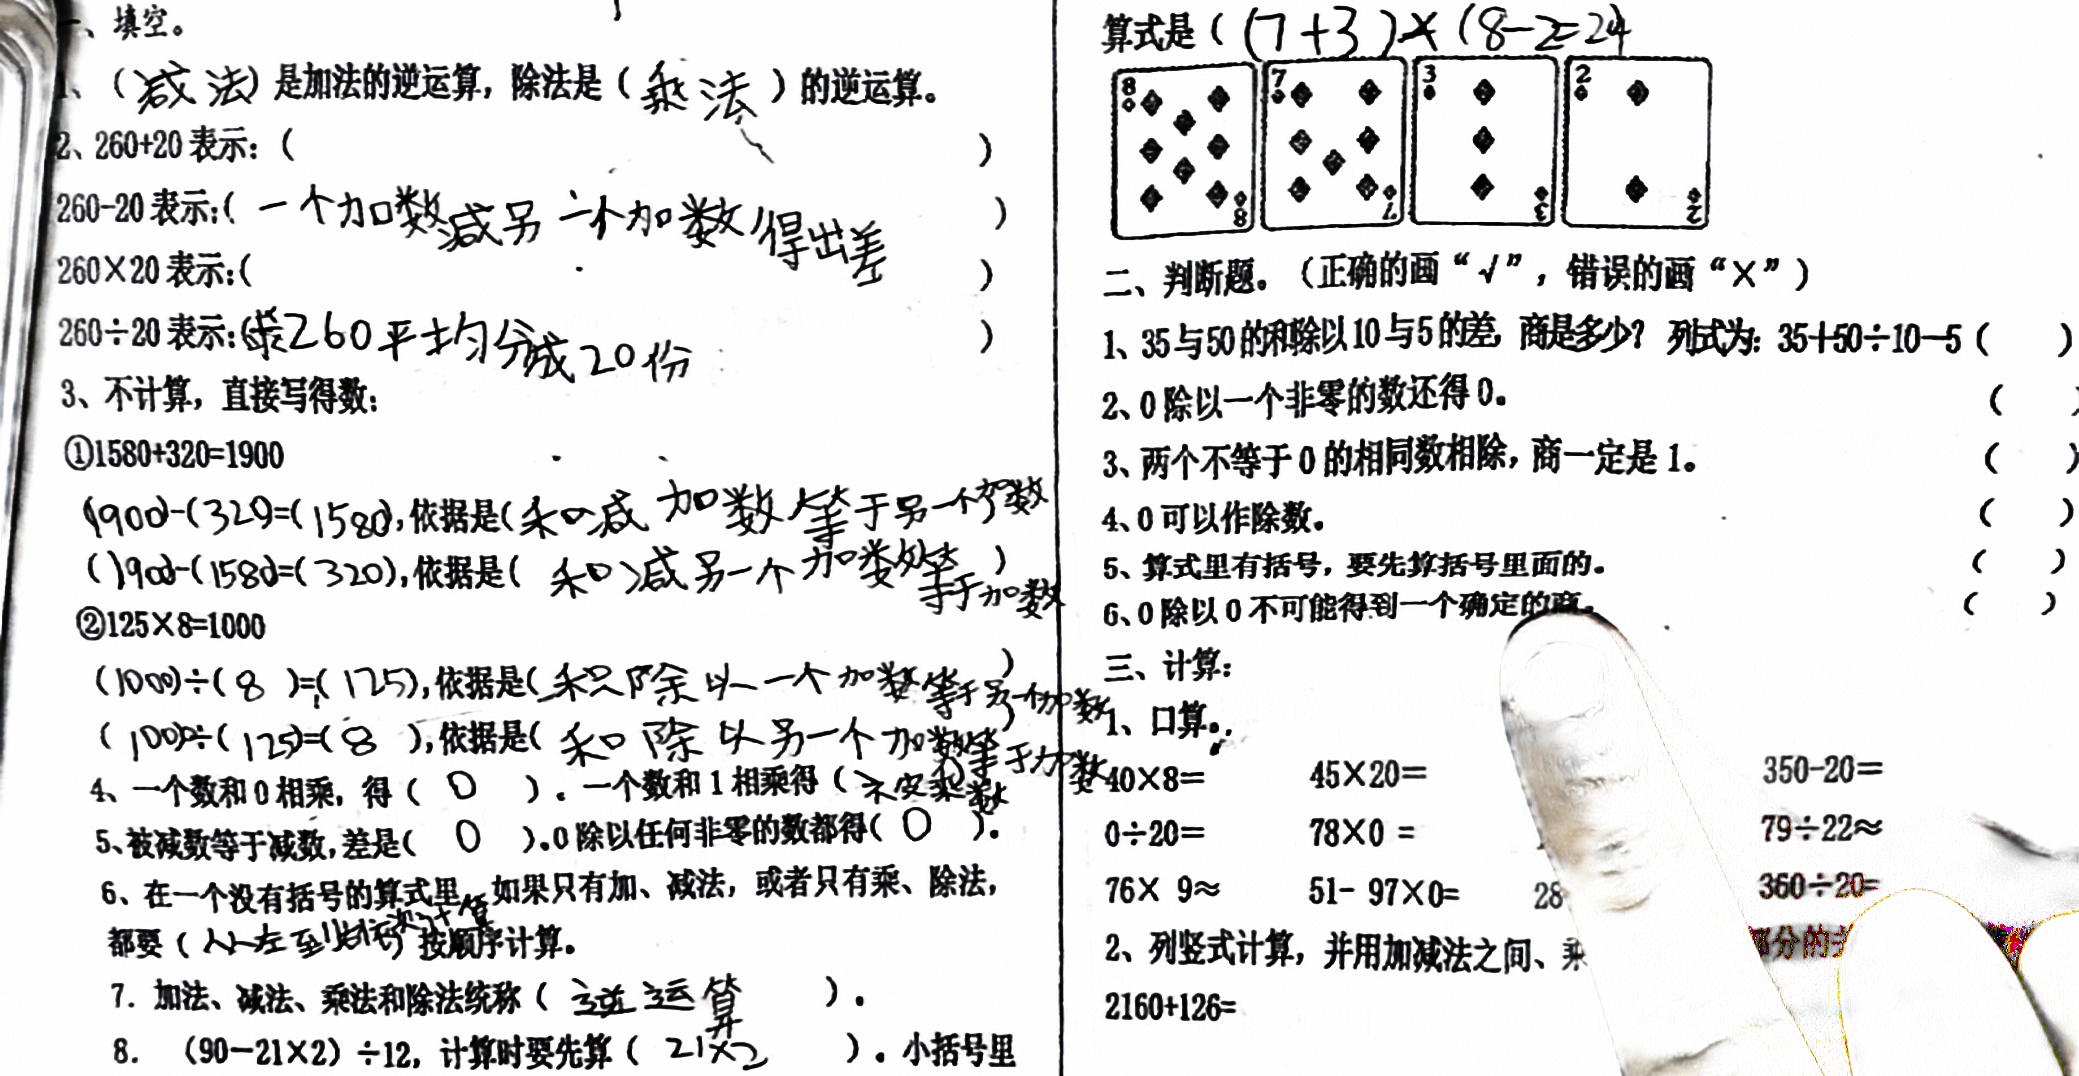 一、填空。
1、（减法）是加法的逆运算，除法是（乘法）的逆运算。
2、260+20表示：（ ）
260-20表示:(一个加数减另一个加数得出差)
260×20表示:( )
260÷20表示:(把260平均分成20份)
3、不计算，直接写得数：
①1580+320=1900
(1900)-(320)=(1580),依据是(和减加数等于另一个加数
(1900)-(1580)=(320),依据是(和减另一个加数等于加数)
②125×8=1000
(1000)÷(8)=(125),依据是(和除以一个加数等于另一个加数)
(1000)÷(125)=(8),依据是(和除以另一个加数等于加数)
4、一个数和0相乘，得（0）。一个数和1相乘得（ 乘数
5、被减数等于减数,差是(0)。0除以任何非零的数都得(0)。
6、在一个没有括号的算式里，如果只有加、减法，或者只有乘、除法，
都要（从左至 计算）按顺序计算。
7. 加法、减法、乘法和除法统称（逆运算）。
8. （90-21×2）÷12，计算时要先算（21×2）。小括号里
算式是（(7+3)×(8-2=24
8 7 3 2
8 7 3 2
二、判断题。（正确的画“√”，错误的画“×”）
1、35与50的和除以10与5的差，商是多少？列式为：35+50÷10-5（ ）
2、0除以一个非零的数还得0。 （ ）
3、两个不等于0的相同数相除，商一定是1。 （ ）
4、0可以作除数。 （ ）
5、算式里有括号，要先算括号里面的。 （ ）
6、0除以0不可能得到一个确定的商。 （ ）
三、计算：
1、口算。
40×8= 45×20= 350-20=
0÷20= 78×0 = 79÷22≈
76× 9≈ 51- 97×0= 28 360÷20=
2、列竖式计算，并用加减法之间、乘 部分的
2160+126=